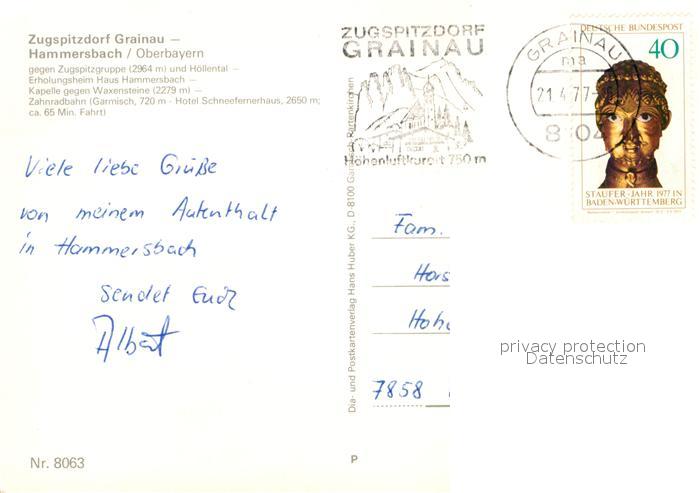 Zugspitzdorf Grainau –
Hammersbach / Oberbayern
gegen Zugspitzgruppe (2964 m) und Höllental –
Erholungsheim Haus Hammersbach –
Kapelle gegen Waxensteine (2279 m) –
Zahnradbahn (Garmisch, 720 m - Hotel Schneefernerhaus, 2650 m;
ca. 65 Min. Fahrt)
Viele liebe Grüße
von meinem Aufenthalt
in Hammersbach
sendet Euch
Albert
Nr. 8063
Dia- und Postkartenverlag Hans Huber KG., D-8100 Garmisch-Partenkirchen
P
ZUGSPITZDORF
GRAINAU
Höhenluftkurort 750 m
GRAINAU
ma
21.4.77
8104
DEUTSCHE BUNDESPOST
40
STAUFER-JAHR 1977 IN
BADEN-WÜRTTEMBERG
Fam.
7858
privacy protection
Datenschutz